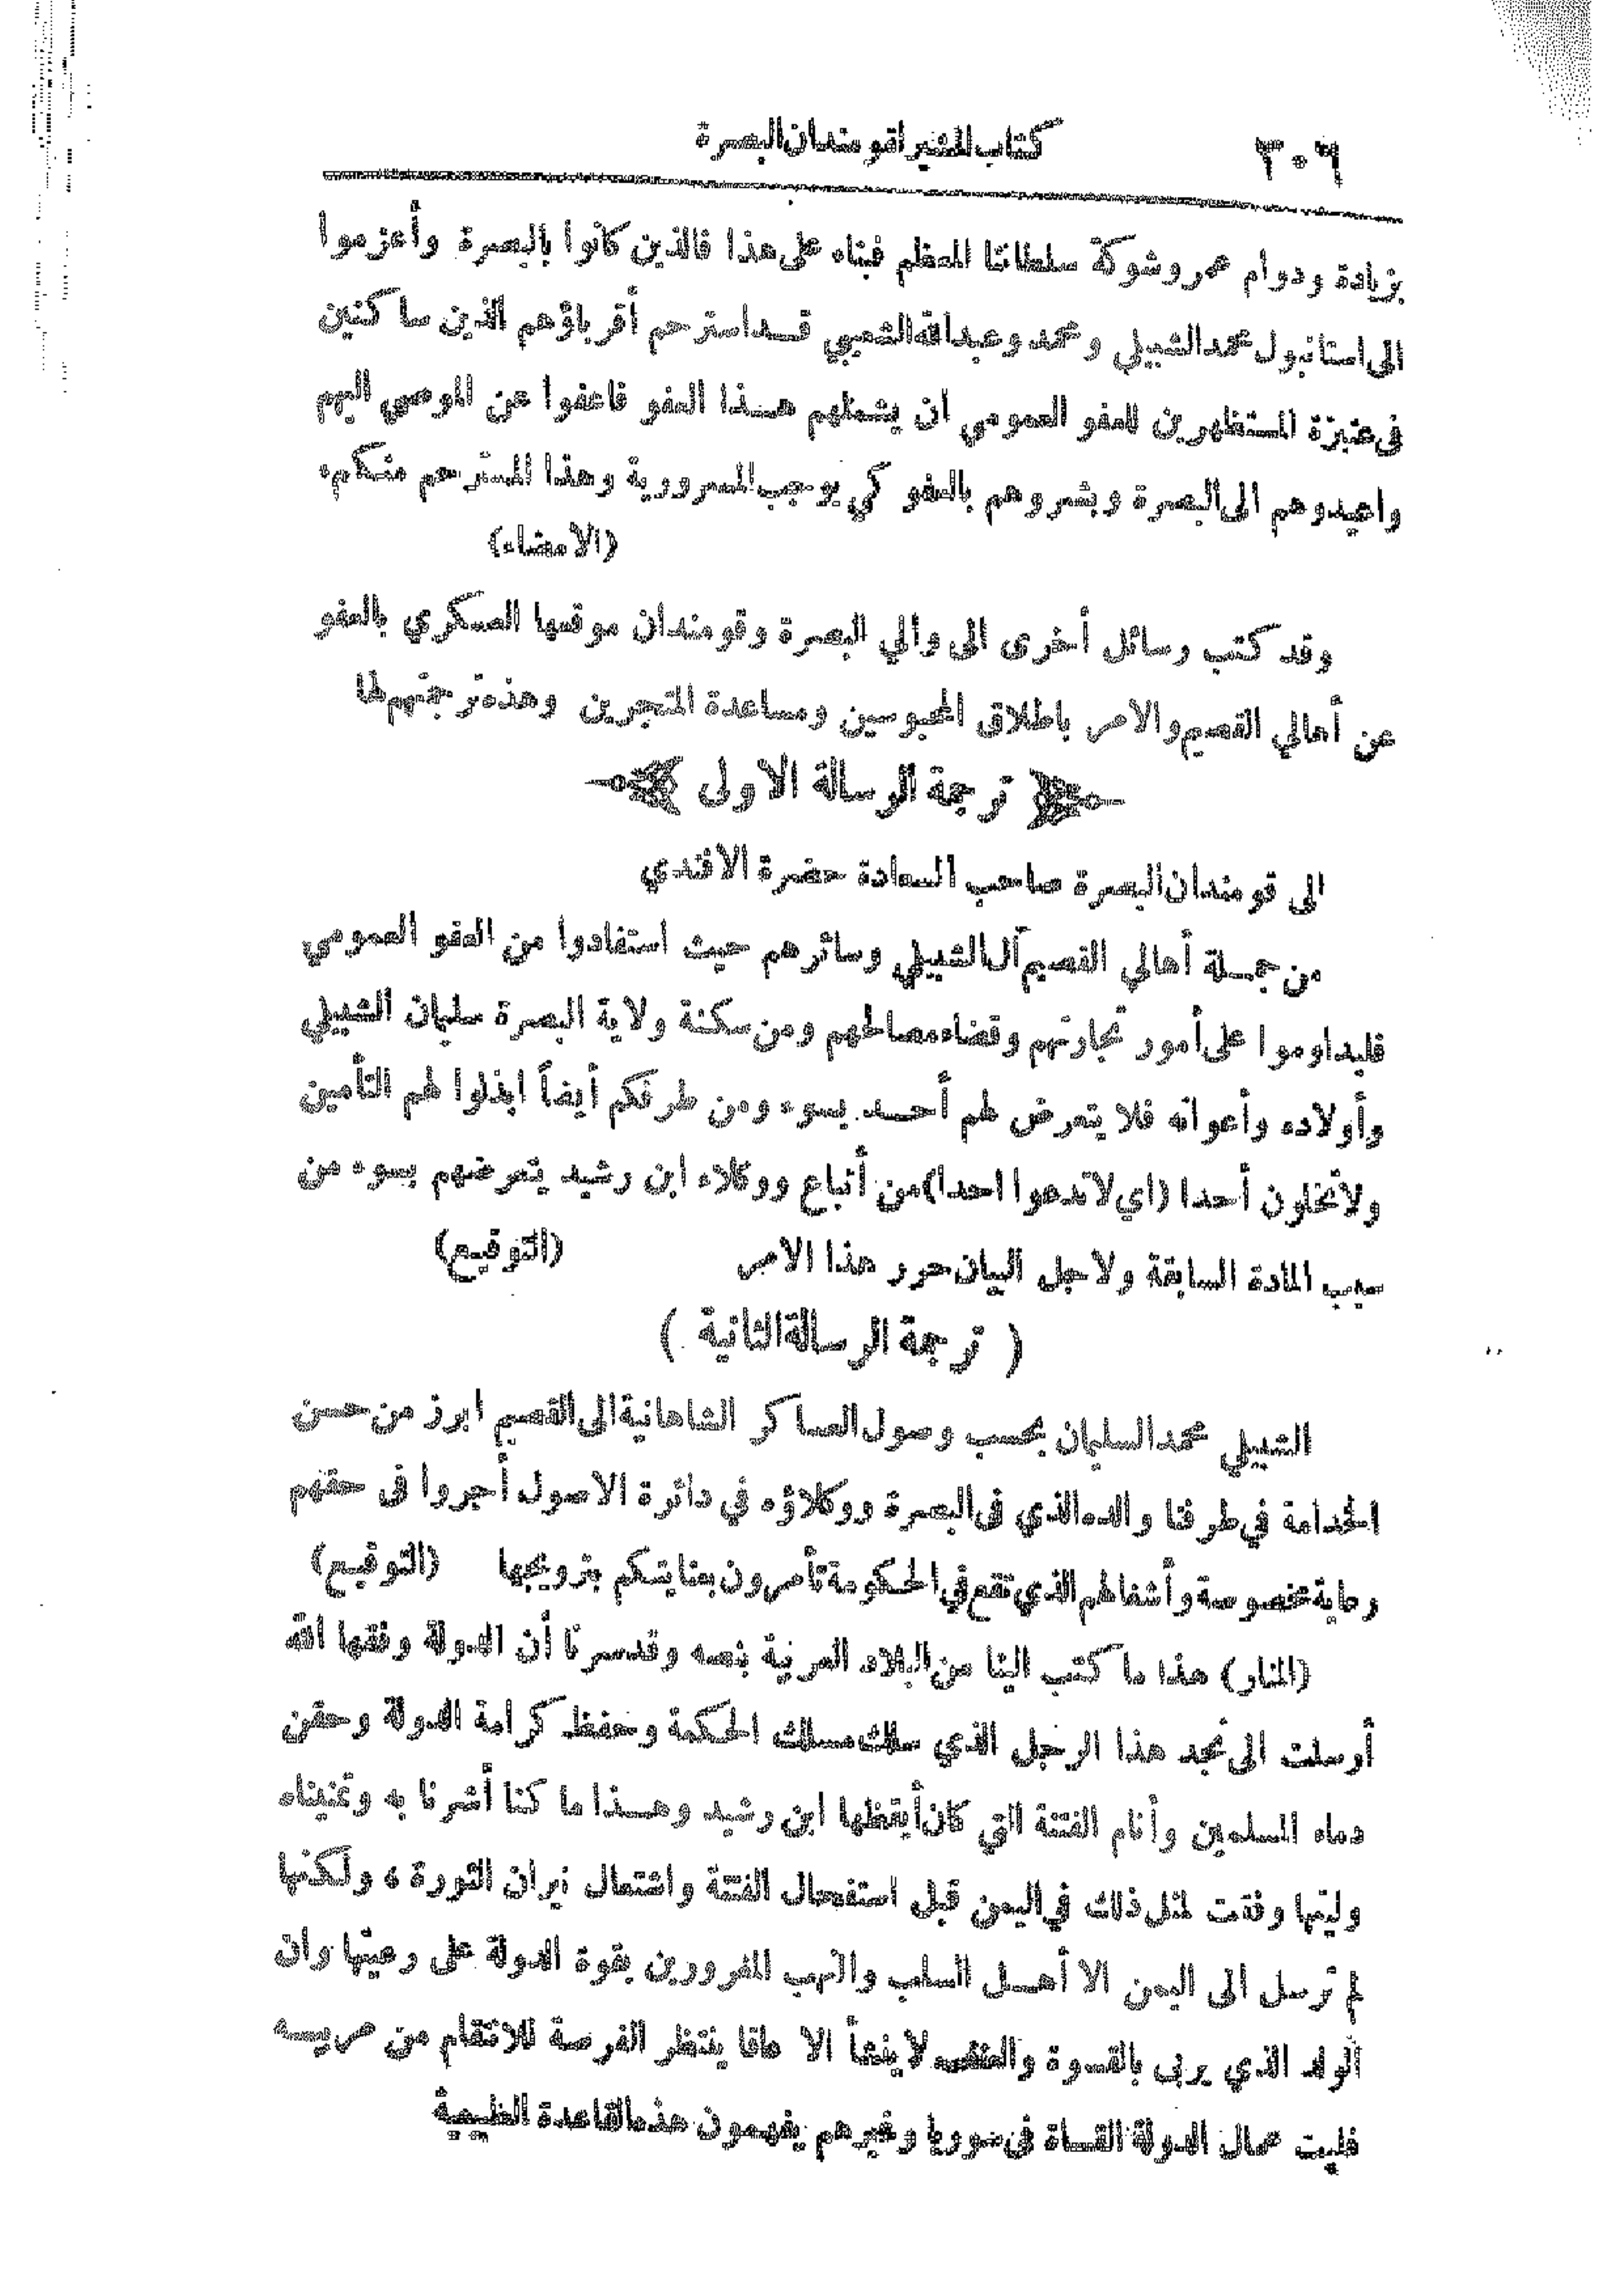 ٣٠٦ كتاب المشير لقومندان البصرة
بزيادة ودوام عمر وشوكة سلطاننا المعظم فبناء على هذا فالذين كانوا بالبصرة وأعزموا
الى استانبول محمد الشبيلي ومحمد وعبدالله الشعيبي قد استرحم أقرباؤهم الذين ساكنين
في عنيزة المستظهرين للعفو العمومي أن يشملهم هذا العفو فاعفوا عن الموصى اليهم
واعيدوهم الى البصرة وبشروهم بالعفو كي يوجب المسرورية وهذا المسترحم منكم.
(الامضاء)
وقد كتب رسائل أخرى الى والي البصرة وقومندان موقعها العسكري بالعفو
عن أهالي القصيم والامر باطلاق المحبوسين ومساعدة المتجرين وهذه ترجمتهم لها
ترجمة الرسالة الاولى
الى قومندان البصرة صاحب السعادة حضرة الافندي
من جملة أهالي القصيم آل الشبيلي وسائرهم حيث استفادوا من العفو العمومي
فليداوموا على أمور تجارتهم وقضاء مصالحهم ومن سكنة ولاية البصرة سليمان الشبيلي
وأولاده وأعوانه فلا يتعرض لهم أحد بسوء ومن طرفكم أيضاً ابذلوا لهم التأمين
ولا تخلون أحدا (اي لا تدعوا احدا) من أتباع ووكلاء ابن رشيد يتعرضهم بسوء من
سبب المادة السابقة ولاجل البيان حرر هذا الامر (التوقيع)
( ترجمة الرسالة الثانية )
الشبيلي محمد السليمان بحسب وصول العساكر الشاهانية الى القصيم ابرز من حسن
الخدامة في طرفنا والده الذي في البصرة ووكلاؤه في دائرة الاصول أجروا في حقهم
رعاية مخصوصة وأشغالهم الذي تقع في الحكومة تأمرون بعنايتكم بترويجها (التوقيع)
(المنار) هذا ما كتب الينا من البلاد العربية بنصه وقد سرنا أن الدولة وفقها الله
أرسلت الى نجد هذا الرجل الذي سلك مسلك الحكمة وحفظ كرامة الدولة وحقن
دماء المسلمين وأنام الفتنة التي كان أيقظها ابن رشيد وهذا ما كنا أشرنا به وتمنيناه
وليتها وفقت لمثل ذلك في اليمن قبل استفحال الفتنة واشتعال نيران الثورة ، ولكنها
لم ترسل الى اليمن الا أهل السلب والنهب المغرورين بقوة الدولة على رعيتها وان
الولد الذي يربى بالقسوة لا ينشأ الا عاقا ينتظر الفرصة للانتقام من مربيه
فليت عمال الدولة القساة في سوريا وغيرهم يفهمون هذه القاعدة الطبيعية